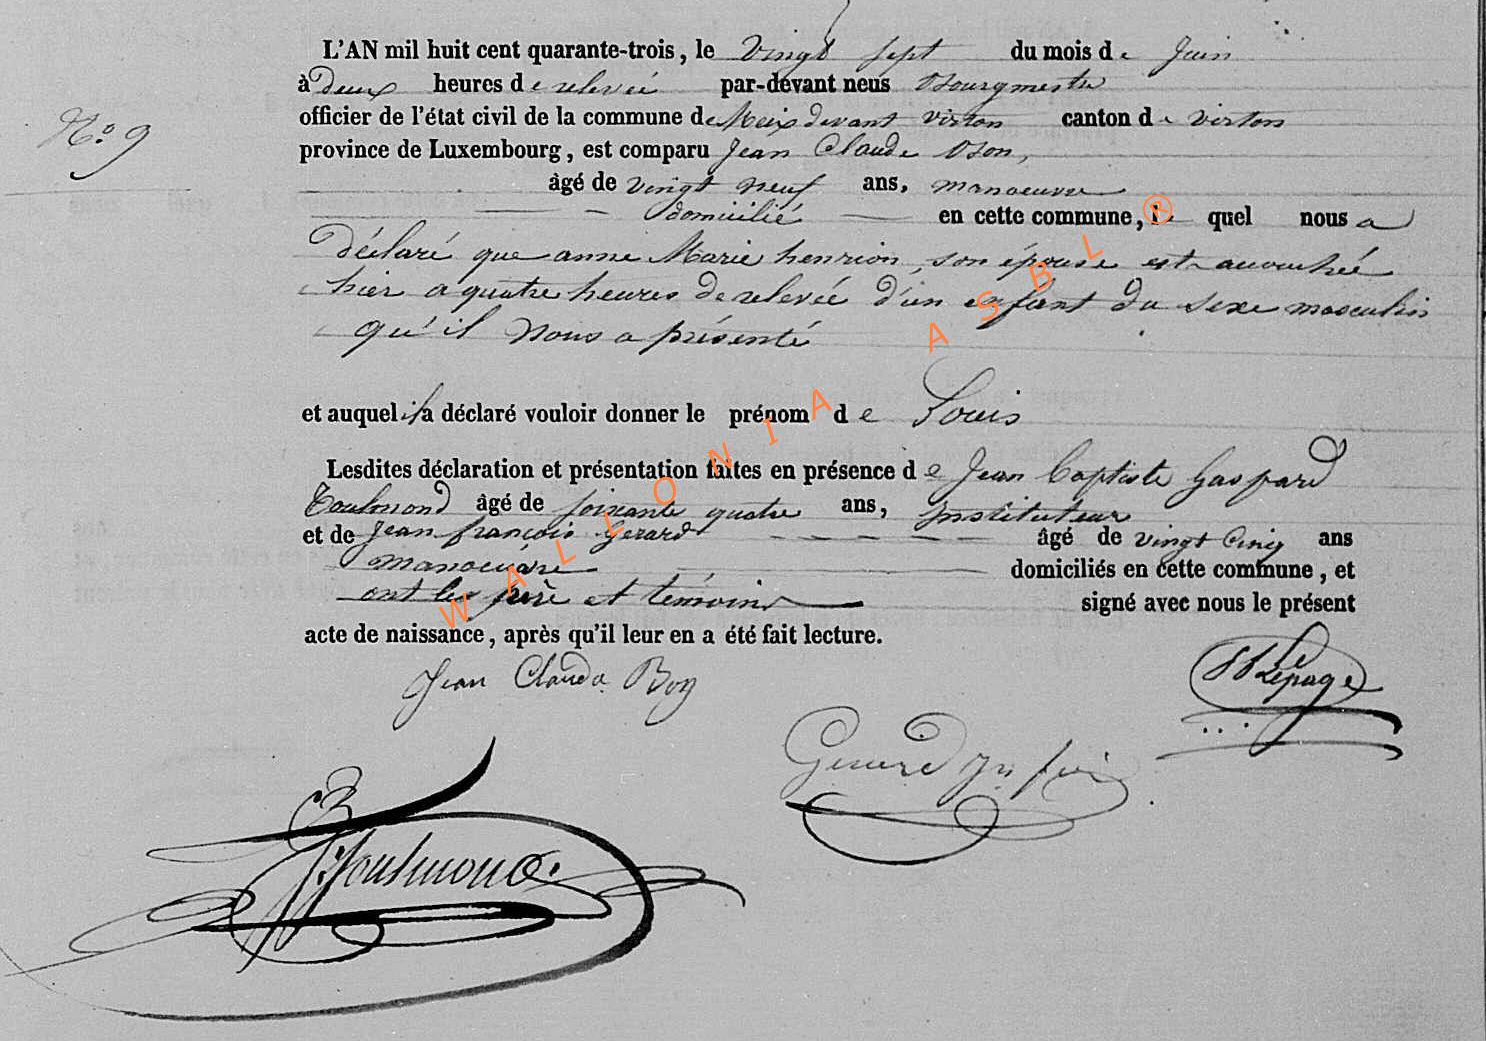 L'AN mil huit cent quarante-trois, le vingt sept du mois de Juin
à deux heures de relevée par-devant nous Bourgmestre
officier de l'état civil de la commune de Meix devant virton canton de virton
N.º 9
province de Luxembourg, est comparu Jean Claude Bon,
âgé de vingt neuf ans, manoeuvre
domicilié en cette commune, le quel nous a
déclaré que anne Marie henrion, son épouse est accouchée
hier a quatre heures de relevée d'un enfant du sexe masculin
qu'il nous a présenté
et auquel il a déclaré vouloir donner le prénom de Louis
Lesdites déclaration et présentation faites en présence de Jean Baptiste Gaspard
Toulmond âgé de soixante quatre ans, instituteur
et de Jean françois Gerard âgé de vingt Cinq ans
manoeuvre domiciliés en cette commune, et
ont les père et témoins signé avec nous le présent
acte de naissance, après qu'il leur en a été fait lecture.
Jean Claude Bon
Lepage
Gerard
Toulmond
WALLONIA ASBL ®